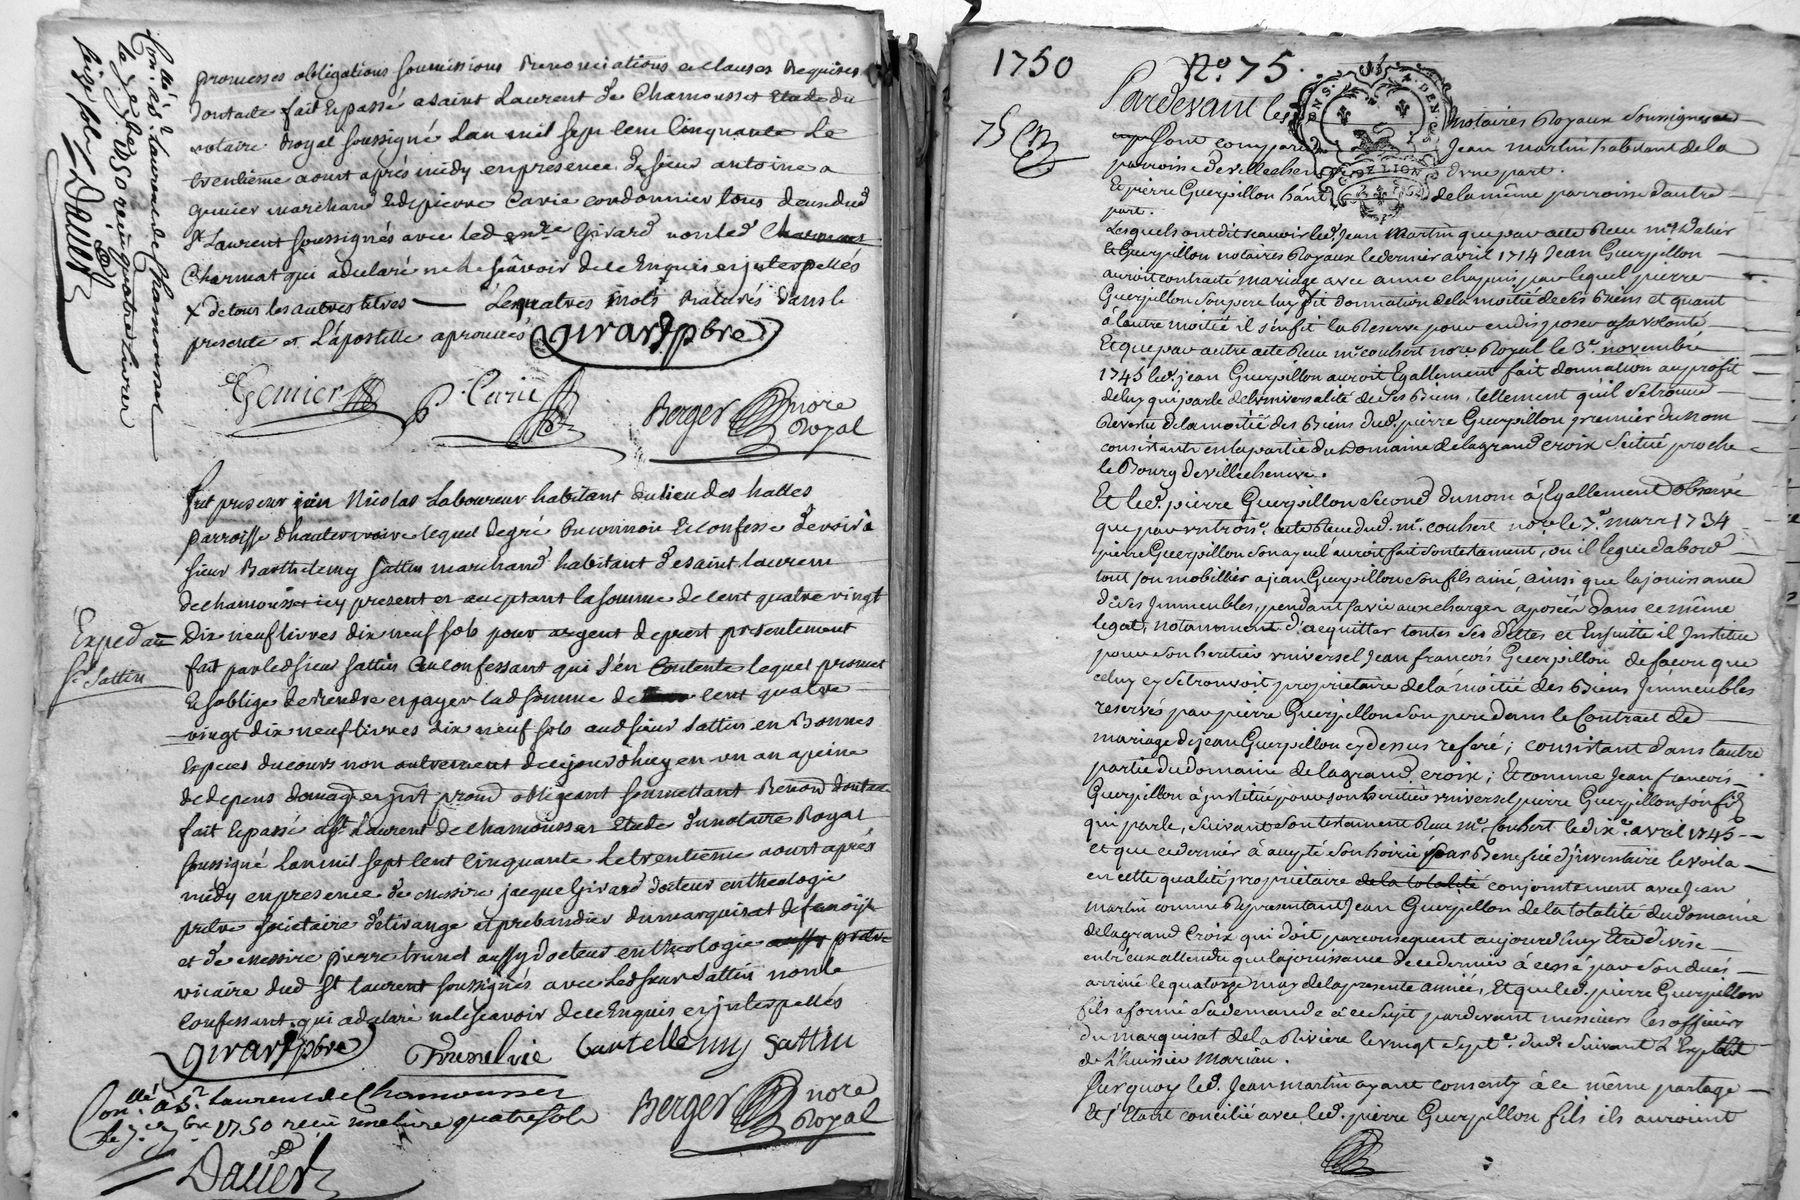 promesses obligations soumissions Renonciations et clauses Requises
dont acte fait Et passé a saint Laurent de Chamousset Etude du
notaire Royal soussigné Lan mil sept cent Cinquante Le
trentieme aoust aprés midy en presence de sieur antoine
marchand Et de pierre Carie cordonnier tous deux dud
St Laurent soussignés avec led Girard non led Charmat
Charmat qui a declaré ne le sçavoir de ce Enquis et interpellés
x de tous les autres titres — Les quatres mots Raturés dans le
presente et L'apostille aprouvés
Girard pbre
Gemier P. Carie
Berger nore
Royal
Con.llé à St Laurent de Chamousset
le 7e 7bre 1750 reçu quatre livres
seize sols
Dauer
fut present Nicolas Laboureur habitant du lieu des halles
parroisse d'hauterivoire lequel de gré Reconnoit Et confesse devoir à
sieur Barthelemy Sattin marchand habitant de saint laurent
de chamousset icy present et acceptant la somme de Cent quatre vingt
Dix neuf livres dix neuf sols pour argent de prest presentement
fait par led sieur Sattin au confessant qui s'en Contente lequel promet
Et s'oblige de Rendre et payer lad somme de cent quatre
vingt dix neuf livres dix neuf sols aud sieur Sattin en Bonnes
Especes du cours non autrement de ce jourd'huy en un an a peine
de depens domag et jnt prom obligeant soumettant Renon dont acte
fait Et passé a St Laurent de Chamousset Etude du notaire Royal
soussigné Lan mil sept Cent Cinquante Le trentieme aoust aprés
midy en presence de messire jacque Girard docteur en theologie
prebtre societaire d'etivange et prebandier du marquisat de
et de messire pierre brunel aussy docteur en theologie aussy prebtre
vicaire dud St laurent soussignés avec Led sieur Sattin non le
Confessant qui a declaré ne le sçavoir de ce Enquis et jnterpellés
Exped au
Sr Sattin
Girard pbre Brunel vic Bartellemy Sattin
Con.llé à St Laurent de Chamousset
le 7e 7bre 1750 reçu une livre quatre sols
Berger nore
Royal
Dauer
1750 No. 75.
75
Pardevant les notaires Royaux soussignés
GENS. DEN. DE LION
sont comparu Jean martin habitant de la
parroisse de villechene d'une part.
Et pierre Guerpillon hant de la même parroisse d'autre
part.
Lesquels ont dit scavoir led. Jean Martin que par acte Recu mes Dalier
et Guerpillon notaires Royaux le dernier avril 1714 Jean Guerpillon
auroit contracté mariage avec anne chapuis par lequel pierre
Guerpillon son pere luy fit donnation de la moitié de ses Biens et quant
à l'autre moitié il s'en fit la Reserve pour en disposer a sa volonté
Et que par autre acte Recu me coubert nore Royal le 3e novembre
1745 led. jean Guerpillon auroit Egallement fait donnation au profit
de luy qui parle de l'universalité de ses Biens, tellement qu'il se trouve
Revestu de la moitié des Biens dud. pierre Guerpillon premier du nom
consistants en la partie du Domaine de la grand croix situé proche
le Bourg de villechenere.
Et led. pierre Guerpillon second du nom à Egallement observé
que par un trois.e acte Recu dud. me. coubert nore le 7e mars 1734
pierre Guerpillon son ayeul auroit fait son testament, ou il legue d'abord
tout son mobillier a jean Guerpillon son fils ainé, ainsi que la jouissance
de ses Immeubles, pendant sa vie aux charges aposées dans ce même
legat, notamment d'acquitter toutes ses dettes et Ensuitte il Institue
pour son heritier universel Jean francois Guerpillon de facon que
celuy cy se trouvoit proprietaire de la moitié des Biens Immeubles
reservés par pierre Guerpillon son pere dans le Contract de
mariage de jean Guerpillon cy dessus referé; consistant dans l'autre
partie du domaine de la grand croix; Et comme Jean francois
Guerpillon à institué pour son heritier universel pierre Guerpillon son fils
qui parle, suivant son testament Recu me. Coubert le dix.e avril 1745
et que ce dernier à accepté son hoirie sous Benefice d'jnventaire le voila
en cette qualité proprietaire de la totalité conjointement avec Jean
martin comme Representant Jean Guerpillon de la totalité du domaine
de la grand Croix qui doit par consequent aujourd'huy Etre divisé
entr'eux attendu que la jouissance de ce dernier à cessé par son decés
arrivé le quatorze may de la presente année, Et que led. pierre Guerpillon
fils a formé sa demande à ce sujet pardevant messieurs les officiers
du marquisat de la Riviere le vingt sept.e dud. suivant L'Exploit
de l'huissier Marion.
Sur quoy led. Jean martin ayant consenty à ce même partage
Et s'Etant concilié avec led. pierre Guerpillon fils ils auroient